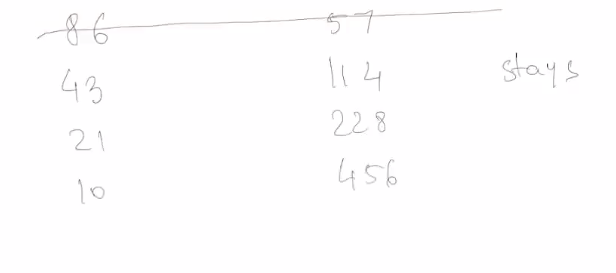 86 57
43 114 stays
21 228
10 456